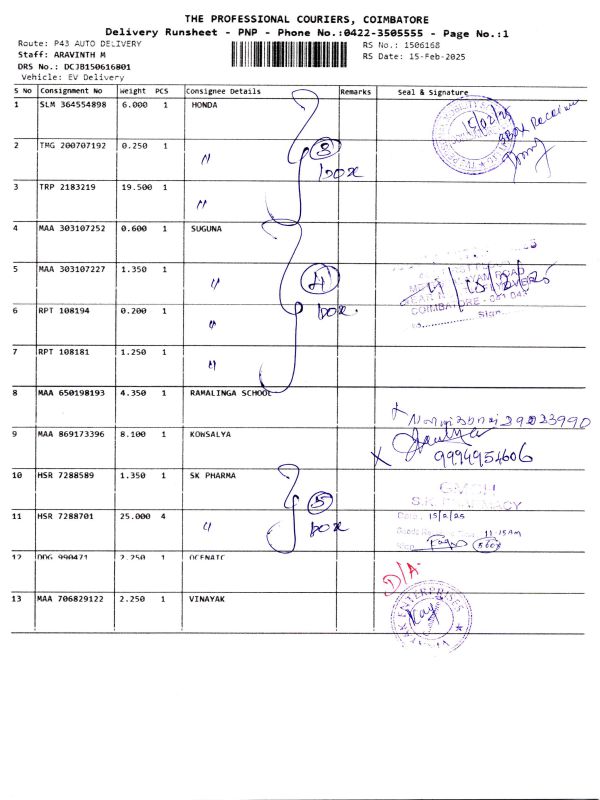 THE PROFESSIONAL COURIERS, COIMBATORE
Delivery Runsheet - PNP - Phone No.:0422-3505555 - Page No.:1
Route: P43 AUTO DELIVERY
Staff: ARAVINTH M
DRS No.: DCJB150616801
Vehicle: EV Delivery
RS No.: 1506168
RS Date: 15-Feb-2025
S No Consignment No Weight PCS Consignee Details Remarks Seal & Signature
1 SLM 364554898 6.000 1 HONDA
15/02/25
3 BOX Receive
2 TMG 200707192 0.250 1 〃
3 box
3 TRP 2183219 19.500 1 〃
4 MAA 303107252 0.600 1 SUGUNA
5 MAA 303107227 1.350 1 〃
4 box
COIMBATORE
Sign
6 RPT 108194 0.200 1 〃
7 RPT 108181 1.250 1 〃
8 MAA 650198193 4.350 1 RAMALINGA SCHOOL
9 MAA 869173396 8.100 1 KOWSALYA
X 9994954606
10 HSR 7288589 1.350 1 SK PHARMA
S.K. PHARMACY
11 HSR 7288701 25.000 4 〃
5 box
Date: 15/2/25
11.15AM
12 DDG 990471 2.250 1 OCENAIC
D/A
13 MAA 706829122 2.250 1 VINAYAK
ENTERPRISES